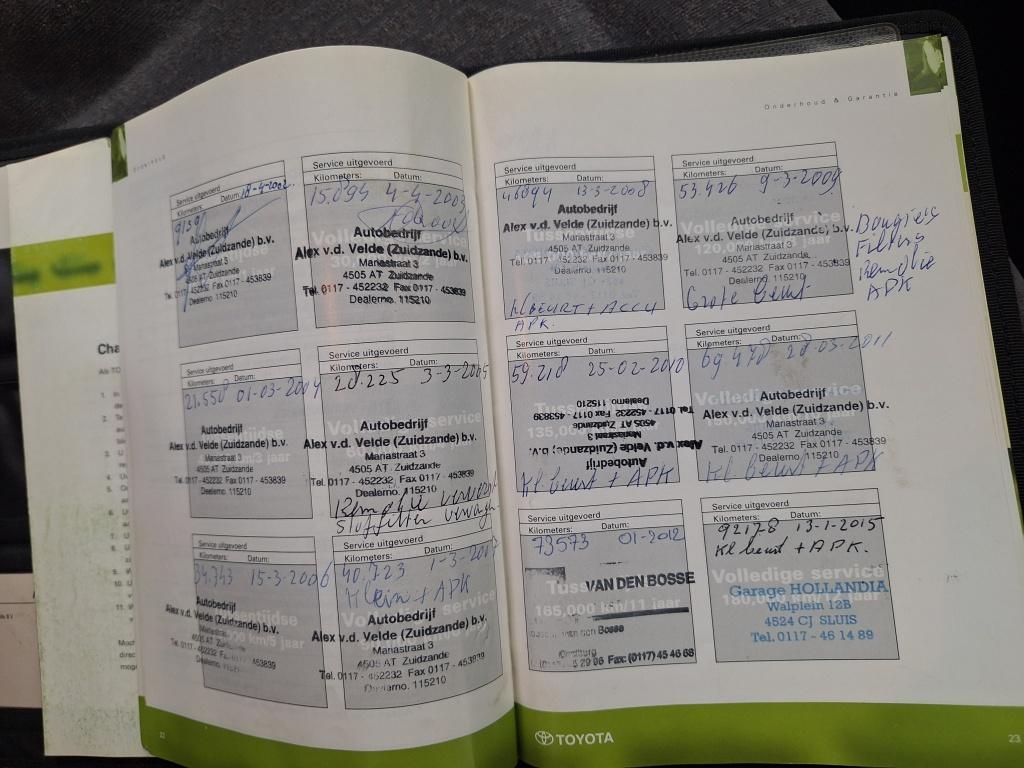 Onderhoud
Service uitgevoerd
Kilometers: Datum:
9191 18-4-2002
Autobedrijf
Alex v.d. Velde (Zuidzande) b.v.
Mariastraat 3
4505 AT Zuidzande
Tel. 0117 - 452232 Fax 0117 - 453839
Dealerno. 115210
Service uitgevoerd
Kilometers: Datum:
15.094 4-4-2003
Autobedrijf
Alex v.d. Velde (Zuidzande) b.v.
Mariastraat 3
4505 AT Zuidzande
Tel. 0117 - 452232 Fax 0117 - 453839
Dealerno. 115210
Service uitgevoerd
Kilometers: Datum:
21.550 01-03-2004
Autobedrijf
Alex v.d. Velde (Zuidzande) b.v.
Mariastraat 3
4505 AT Zuidzande
Tel. 0117 - 452232 Fax 0117 - 453839
Dealerno. 115210
Service uitgevoerd
Kilometers: Datum:
28.225 3-3-2005
Autobedrijf
Alex v.d. Velde (Zuidzande) b.v.
Mariastraat 3
4505 AT Zuidzande
Tel. 0117 - 452232 Fax 0117 - 453839
Dealerno. 115210
Service uitgevoerd
Kilometers: Datum:
34.743 15-3-2006
Autobedrijf
Alex v.d. Velde (Zuidzande) b.v.
Mariastraat 3
4505 AT Zuidzande
Tel. 0117 - 452232 Fax 0117 - 453839
Service uitgevoerd
Kilometers: Datum:
40.723 1-3-2007
Klein + APK
Autobedrijf
Alex v.d. Velde (Zuidzande) b.v.
Mariastraat 3
4505 AT Zuidzande
Tel. 0117 - 452232 Fax 0117 - 453839
Dealerno. 115210
22
Onderhoud & Garantie
Service uitgevoerd
Kilometers: Datum:
46094 13-3-2008
Autobedrijf
Alex v.d. Velde (Zuidzande) b.v.
Mariastraat 3
4505 AT Zuidzande
Tel. 0117 - 452232 Fax 0117 - 453839
Dealerno. 115210
kl BEURT + ACCU
APK.
Service uitgevoerd
Kilometers: Datum:
53.426 9-3-2009
Volledige service
Autobedrijf
Alex v.d. Velde (Zuidzande) b.v.
Mariastraat 3
4505 AT Zuidzande
Tel. 0117 - 452232 Fax 0117 - 453839
Dealerno. 115210
Grote beurt
Bougies
Filters
Remolie
APK
Service uitgevoerd
Kilometers: Datum:
59.218 25-02-2010
Autobedrijf
Alex v.d. Velde (Zuidzande) b.v.
Mariastraat 3
4505 AT Zuidzande
Tel. 0117 - 452232 Fax 0117 - 453839
Dealerno. 115210
Kl beurt + APK
Service uitgevoerd
Kilometers: Datum:
69 470 28-03-2011
Volledige service
Autobedrijf
Alex v.d. Velde (Zuidzande) b.v.
Mariastraat 3
4505 AT Zuidzande
Tel. 0117 - 452232 Fax 0117 - 453839
Dealerno. 115210
Kl beurt + APK
Service uitgevoerd
Kilometers: Datum:
73573 01-2012
VAN DEN BOSSE
165,000 km/11 jaar
Fax: (0117) 45 46 68
Service uitgevoerd
Kilometers: Datum:
92178 13-1-2015
Kl beurt + APK.
Volledige service
Garage HOLLANDIA
Walplein 12B
4524 CJ SLUIS
Tel. 0117 - 46 14 89
TOYOTA
23